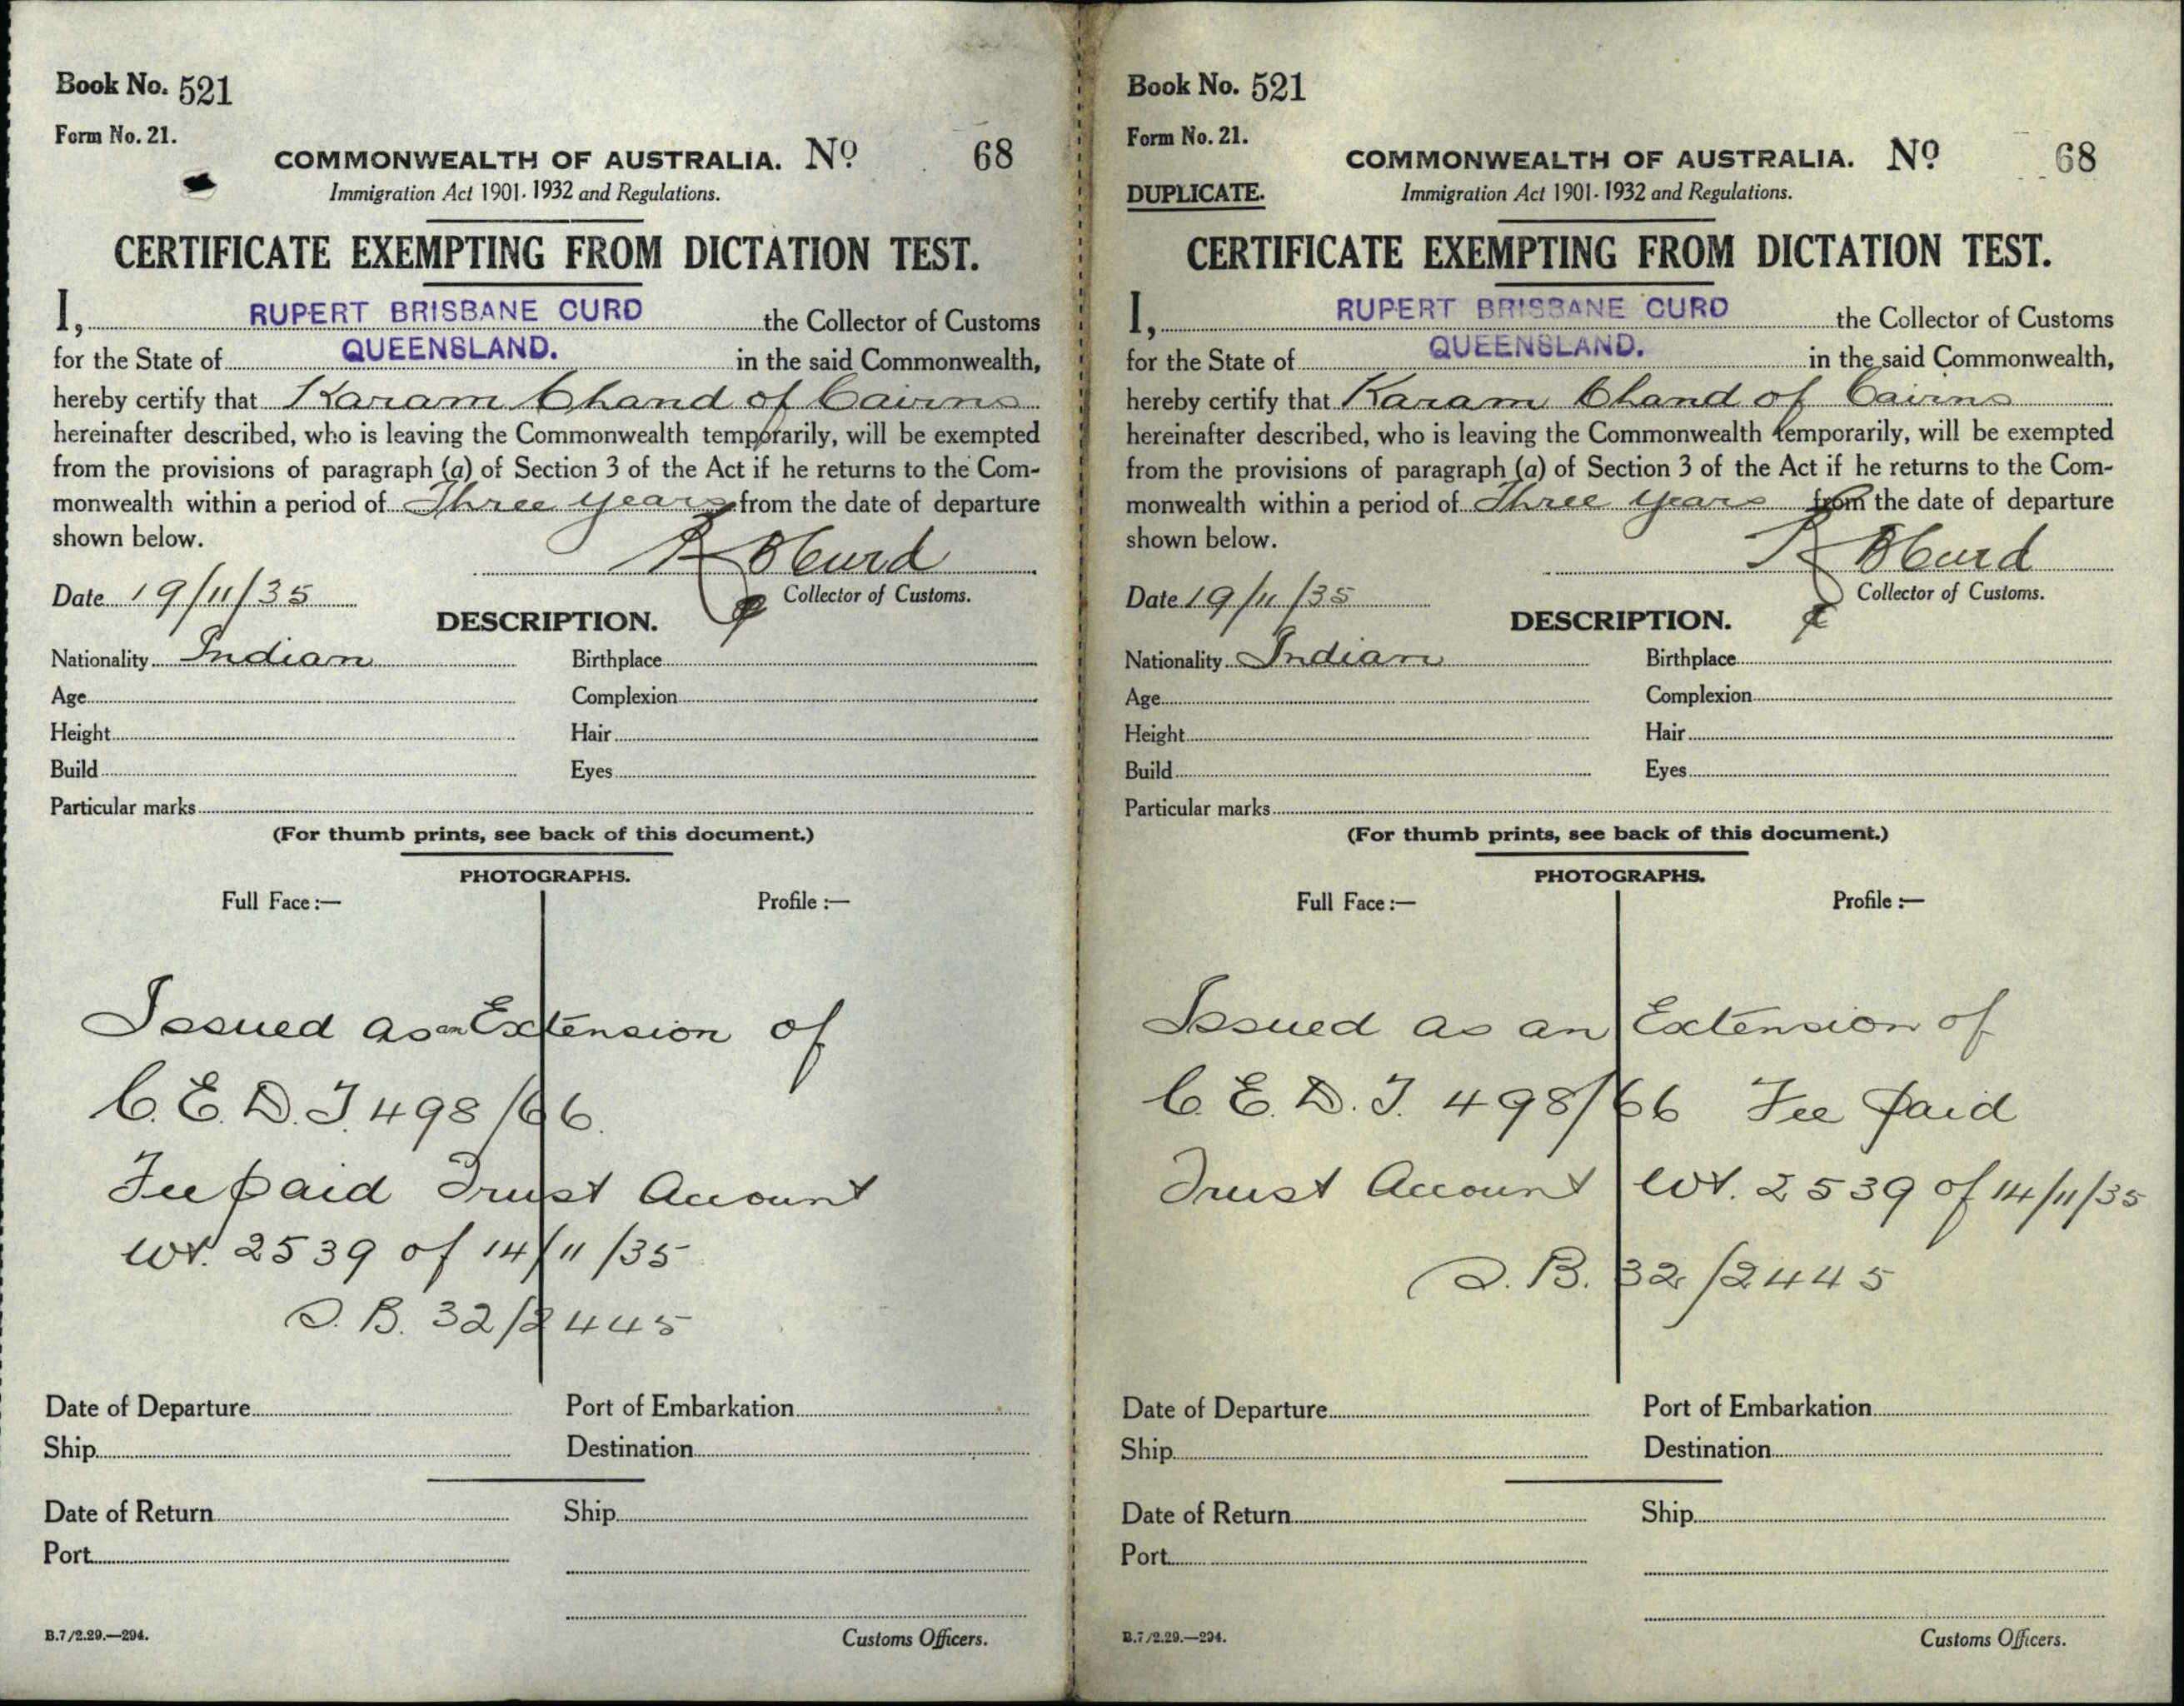 Book No. 521
Form No. 21.
COMMONWEALTH OF AUSTRALIA. Nº 68
Immigration Act 1901-1932 and Regulations.
CERTIFICATE EXEMPTING FROM DICTATION TEST.
I, RUPERT BRISBANE CURD the Collector of Customs
for the State of QUEENSLAND. in the said Commonwealth,
hereby certify that Karam Chand of Cairns
hereinafter described, who is leaving the Commonwealth temporarily, will be exempted
from the provisions of paragraph (a) of Section 3 of the Act if he returns to the Com-
monwealth within a period of Three years from the date of departure
shown below.
R B Curd
Date 19/11/35 Collector of Customs.
DESCRIPTION.
Nationality Indian Birthplace
Age Complexion
Height Hair
Build Eyes
Particular marks
(For thumb prints, see back of this document.)
PHOTOGRAPHS.
Full Face :— Profile :—
Issued as an Extension of
C.E.D.T. 498/66.
Fee paid Trust Account
Wt. 2539 of 14/11/35
D.B. 32/2445
Date of Departure Port of Embarkation
Ship Destination
Date of Return Ship
Port
B.7/2.29.—294. Customs Officers.
Book No. 521
Form No. 21.
COMMONWEALTH OF AUSTRALIA. Nº 68
DUPLICATE. Immigration Act 1901-1932 and Regulations.
CERTIFICATE EXEMPTING FROM DICTATION TEST.
I, RUPERT BRISBANE CURD the Collector of Customs
for the State of QUEENSLAND. in the said Commonwealth,
hereby certify that Karam Chand of Cairns
hereinafter described, who is leaving the Commonwealth temporarily, will be exempted
from the provisions of paragraph (a) of Section 3 of the Act if he returns to the Com-
monwealth within a period of Three years from the date of departure
shown below.
R B Curd
Date 19/11/35 Collector of Customs.
DESCRIPTION.
Nationality Indian Birthplace
Age Complexion
Height Hair
Build Eyes
Particular marks
(For thumb prints, see back of this document.)
PHOTOGRAPHS.
Full Face :— Profile :—
Issued as an Extension of
C.E.D.T. 498/66 Fee paid
Trust Account Wt. 2539 of 14/11/35
D.B. 32/2445
Date of Departure Port of Embarkation
Ship Destination
Date of Return Ship
Port
B.7/2.29.—294. Customs Officers.